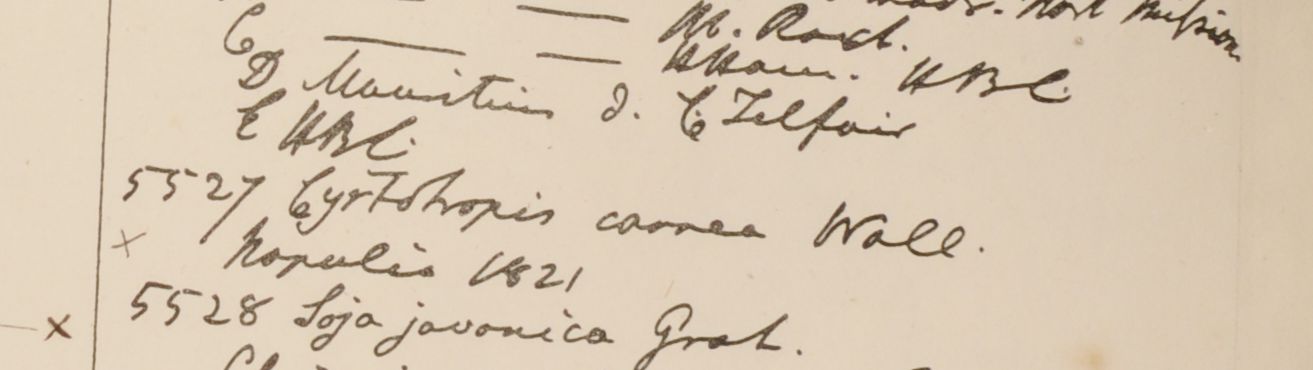 Madr. Nort Mission.
C — — M. Roxb.
D — — HHam. HBC
D Mauritius d. C Telfair
E HBC.
5527 Cyrtotropis carnea Wall.
Napalia 1821
5528 Soja javanica Grah.